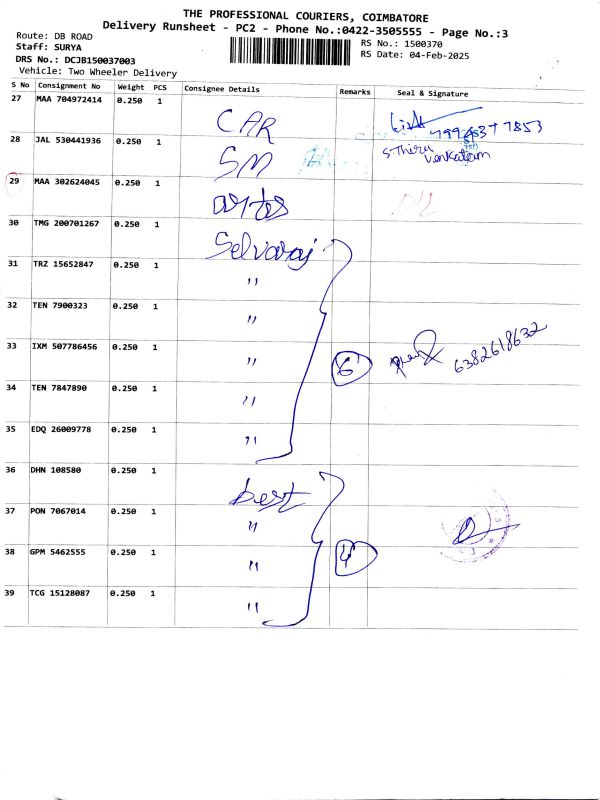 THE PROFESSIONAL COURIERS, COIMBATORE
Delivery Runsheet - PC2 - Phone No.:0422-3505555 - Page No.:3
Route: DB ROAD
RS No.: 1500370
Staff: SURYA
RS Date: 04-Feb-2025
DRS No.: DCJB150037003
Vehicle: Two Wheeler Delivery
S No Consignment No Weight PCS Consignee Details Remarks Seal & Signature
27 MAA 704972414 0.250 1 CAR
28 JAL 530441936 0.250 1 SM S.Thiru Venkatam
29 MAA 302624045 0.250 1
30 TMG 200701267 0.250 1 Selvaraj
31 TRZ 15652847 0.250 1 "
32 TEN 7900323 0.250 1 "
33 IXM 507786456 0.250 1 " 6 6382618632
34 TEN 7847890 0.250 1 "
35 EDQ 26009778 0.250 1 "
36 DHN 108580 0.250 1 best
37 PON 7067014 0.250 1 "
38 GPM 5462555 0.250 1 " 4
39 TCG 15128087 0.250 1 "